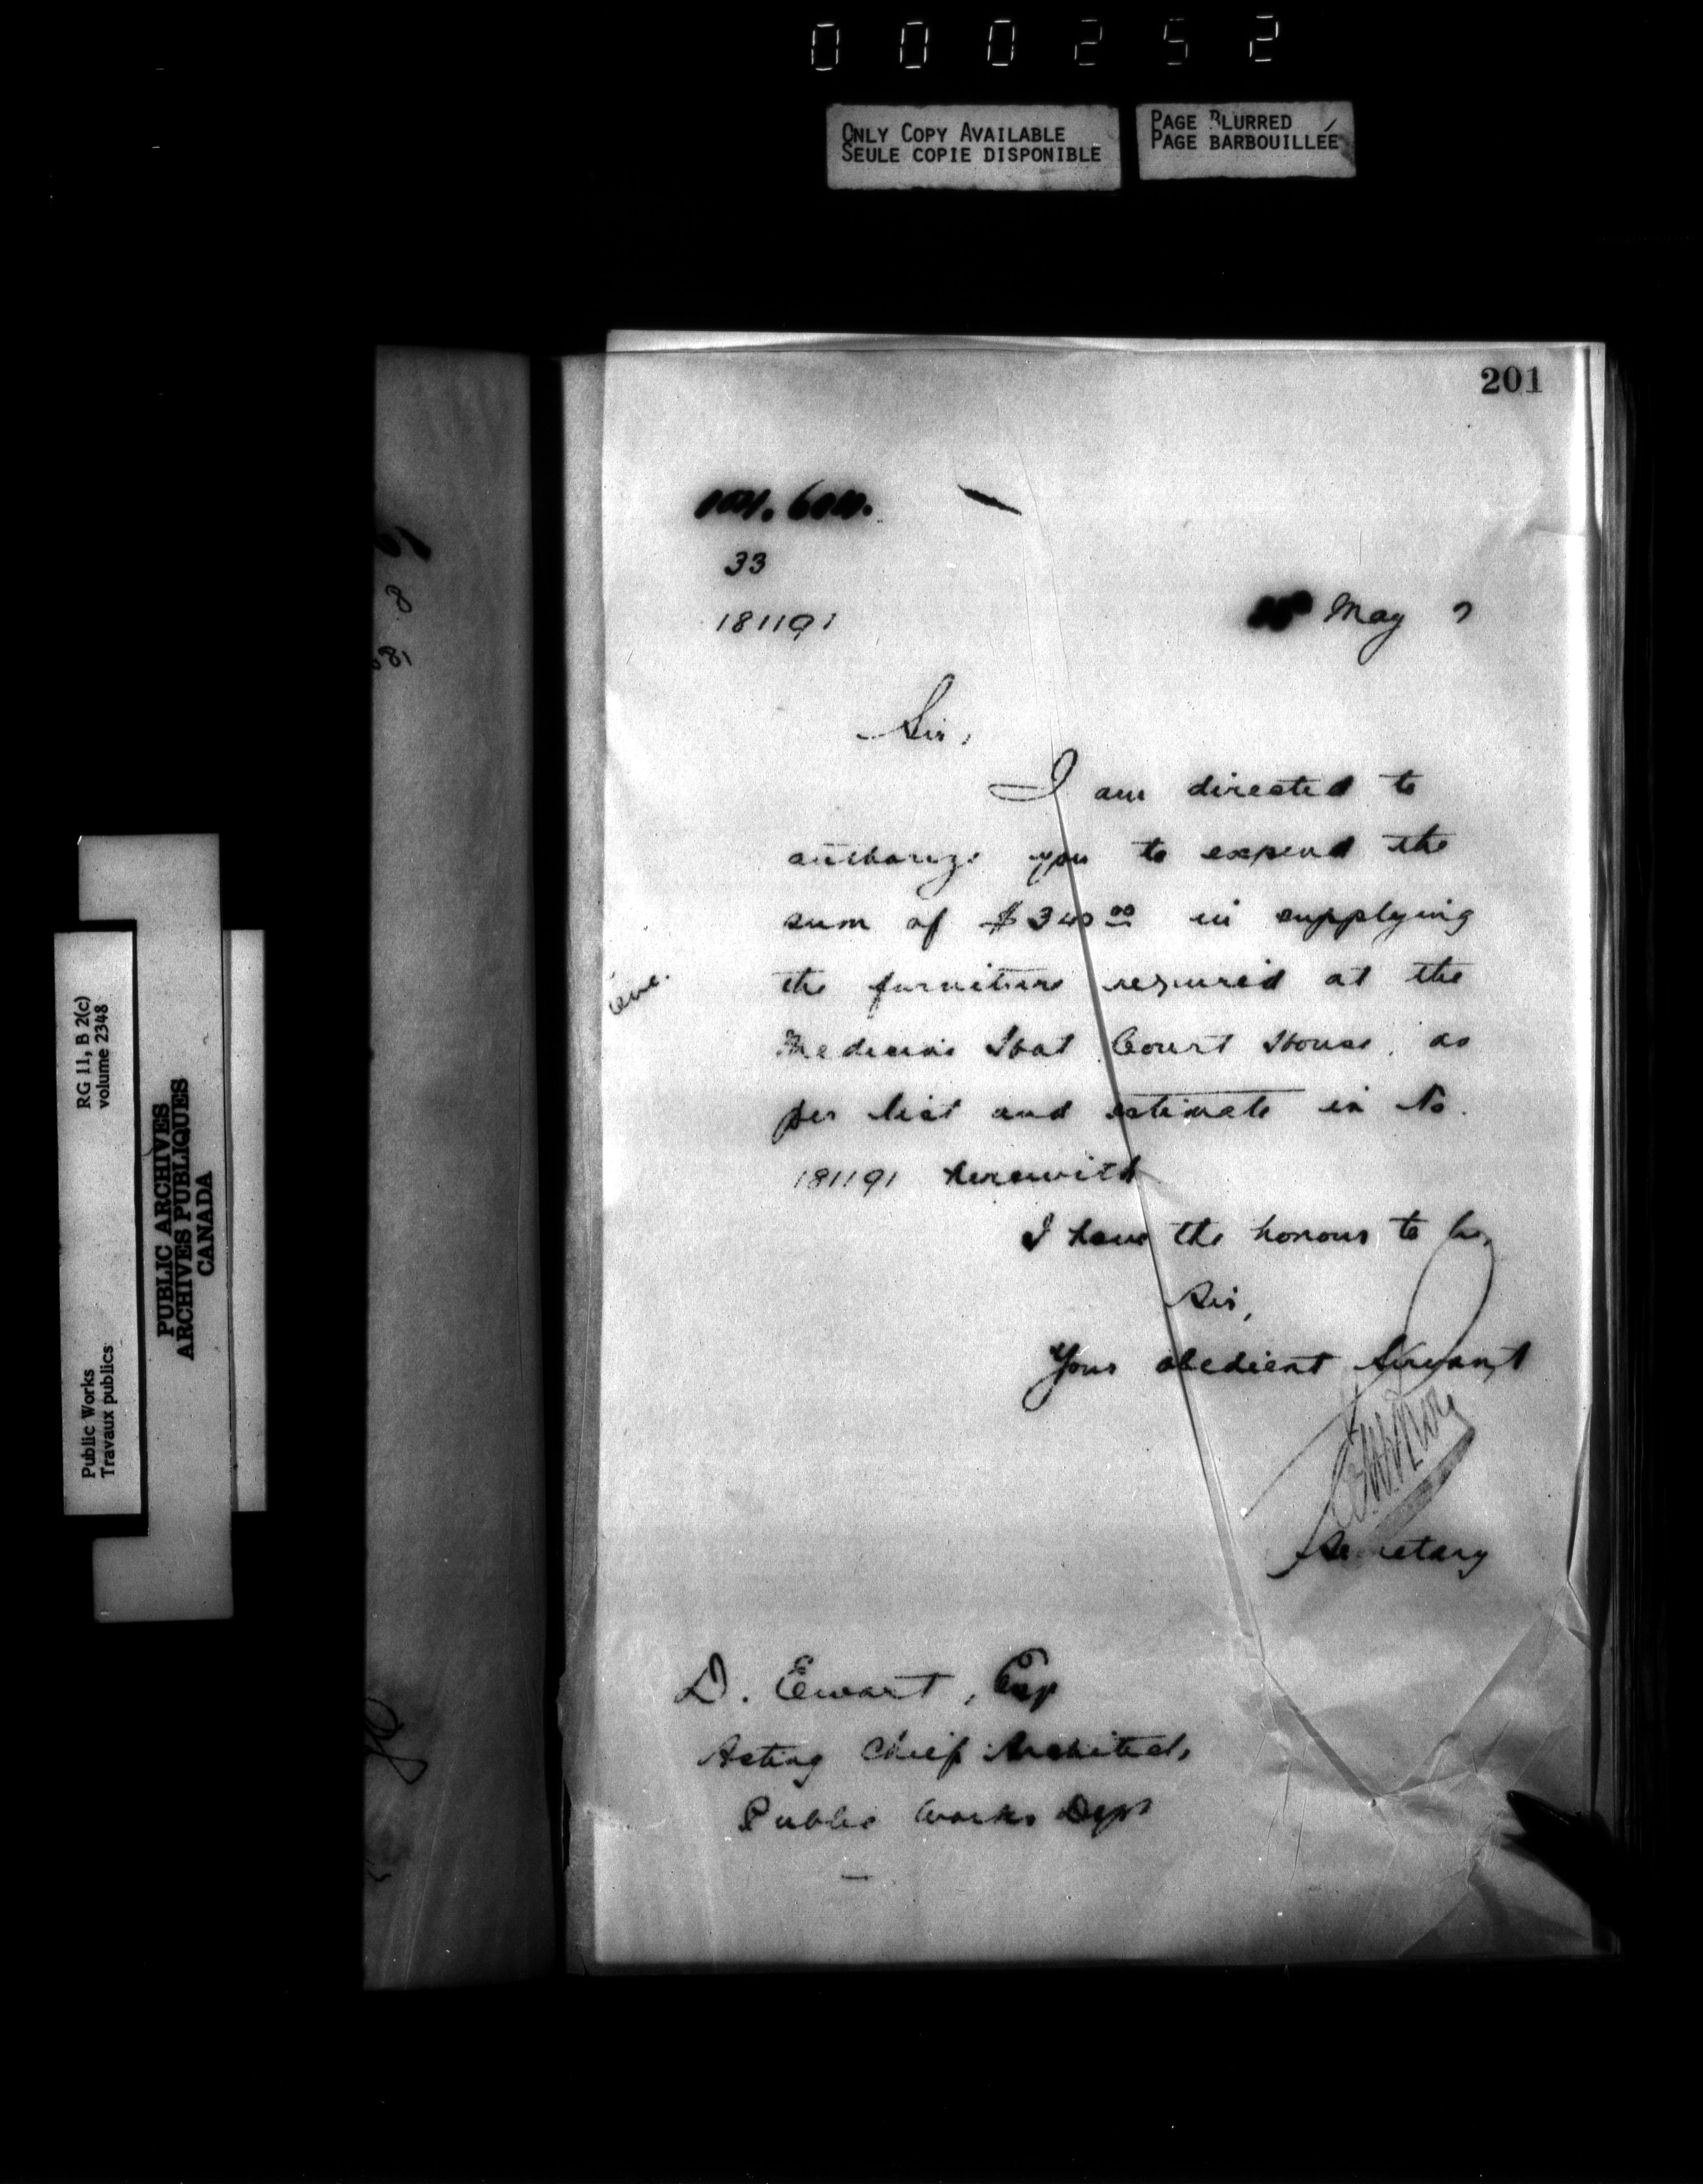 000252
ONLY COPY AVAILABLE
SEULE COPIE DISPONIBLE
PAGE BLURRED
PAGE BARBOUILLÉE
201
33
181191
May 7
Sir,
I am directed to
authorize you to expend the
sum of $340.00 in supplying
the furniture required at the
Medicine Hat Court House, as
per list and estimate in No.
181191 herewith
I have the honour to be,
Sir,
Your obedient Servant
Secretary
D. Ewart, Esq
Acting Chief Architect,
Public Works Dept
encl.
RG 11, B 2(c)
volume 2348
Public Works
Travaux publics
PUBLIC ARCHIVES
ARCHIVES PUBLIQUES
CANADA